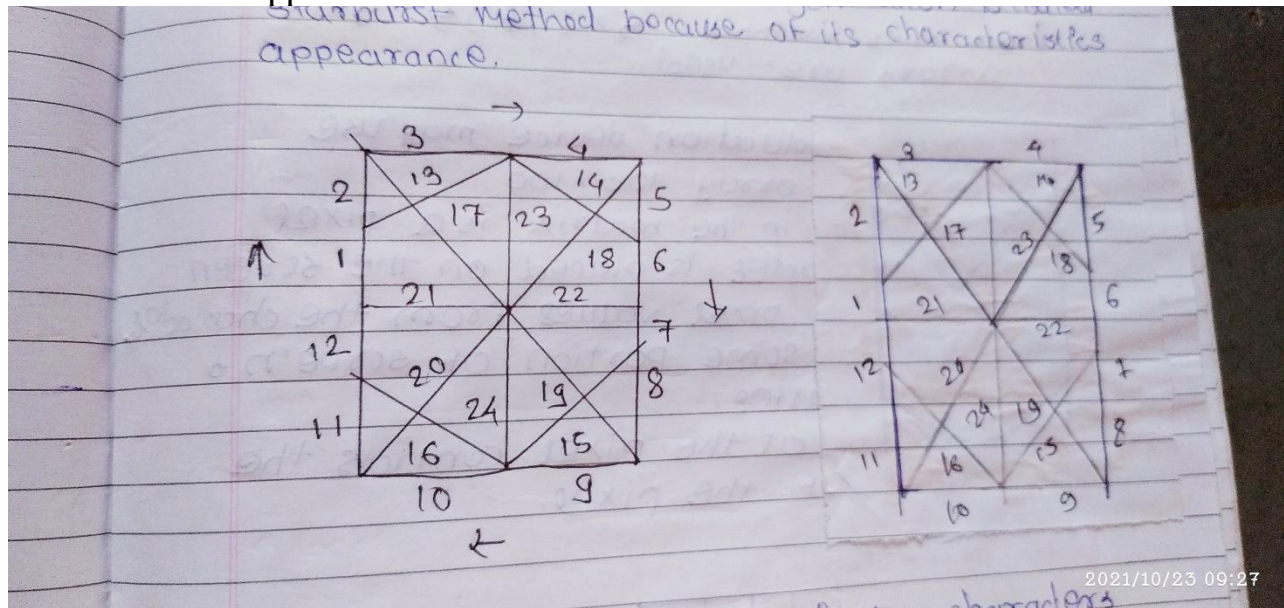 Starburst method because of its characteristics
appearance.
→
3 4
2 13 14 5
17 23
↑ 1 18 6
21 22 ↓
12 7
20 19 8
24
11 16 15
10 9
←
3 4
2 13 14 5
17 23 18
1 21 6
22
12 20 7
24 19 8
11 16 15
10 9
2021/10/23 09:27
characters